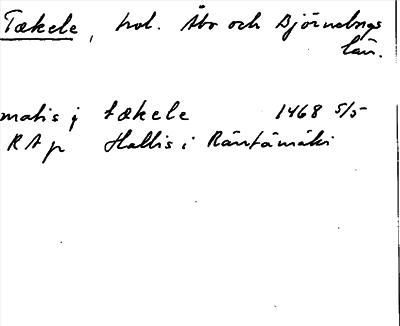 Tækele, hol. Åbo och Björneborgs
län.
matis j tækele 1468 5/5
RA p Hallis i Räntämäki